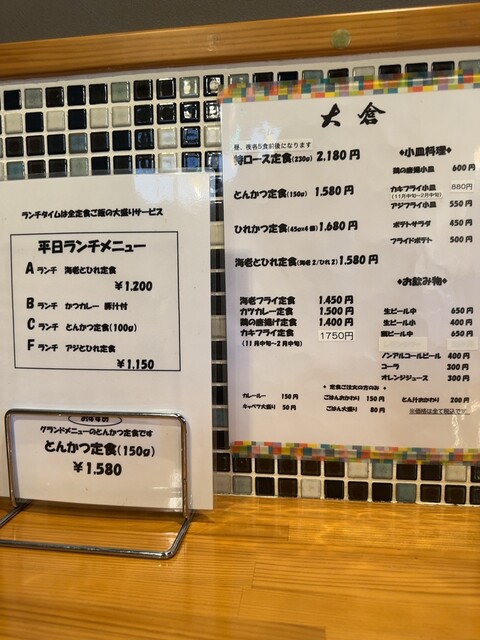 ランチタイムは全定食ご飯の大盛りサービス
平日ランチメニュー
Aランチ 海老とひれ定食
¥1.200
Bランチ かつカレー 豚汁付
Cランチ とんかつ定食(100g)
Fランチ アジとひれ定食
¥1.150
おすすめ
グランドメニューのとんかつ定食です
とんかつ定食(150g)
¥1.580
大倉
昼、夜各5食前後になります
特ロース定食(230g) 2.180円
とんかつ定食(150g) 1.580円
ひれかつ定食(45g×4個) 1.680円
海老とひれ定食(海老2/ひれ2) 1.580円
海老フライ定食 1.450円
カツカレー定食 1.500円
鶏の唐揚げ定食 1.400円
カキフライ定食 1750円
(11月中旬〜2月中旬)
* 定食ご注文の方のみ *
カレールー 150円 ごはんおかわり 150円 とん汁おかわり 200円
キャベツ大盛り 50円 ごはん大盛り 80円 ※価格は全て税込です
◆小皿料理◆
鶏の唐揚小皿 600円
カキフライ小皿 880円
(11月中旬〜2月中旬)
アジフライ小皿 550円
ポテトサラダ 450円
フライドポテト 500円
◆お飲み物◆
生ビール中 650円
生ビール小 400円
瓶ビール中 650円
ノンアルコールビール 400円
コーラ 300円
オレンジジュース 300円